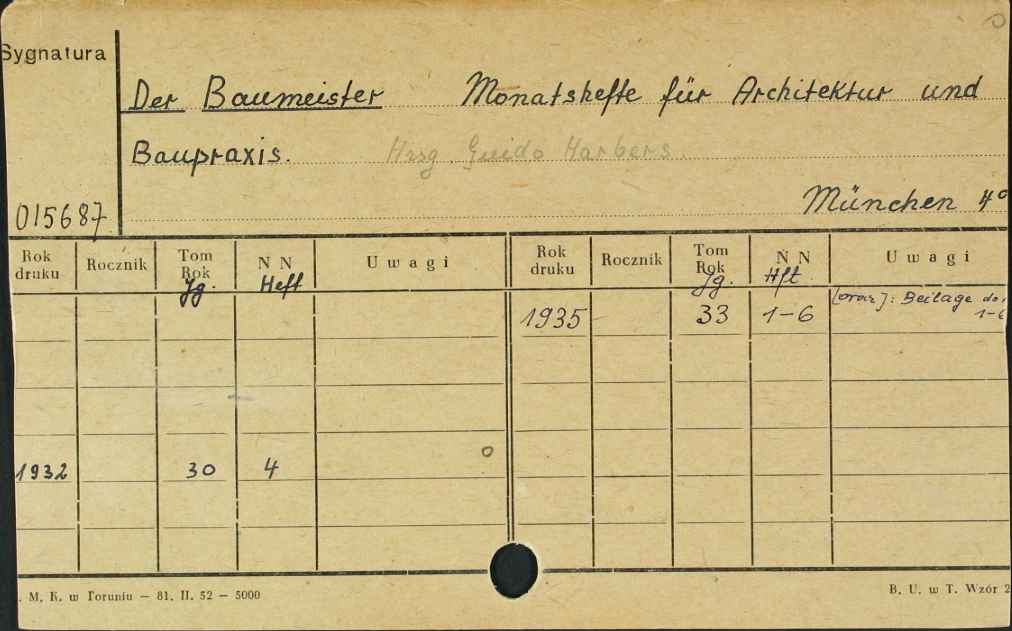 Sygnatura
Der Baumeister Monatshefte für Architektur und
Baupraxis. Hrsg. Guido Harbers.
München 4°
015687
Rok druku Rocznik Tom Rok Jg. N N Heft Uwagi Rok druku Rocznik Tom Rok Jg. N N Hft. Uwagi
1935 33 1-6 [oraz]: Beilage do
1-6
1932 30 4
. M. K. w Toruniu — 81. II. 52 — 5000
B. U. w T. Wzór 2